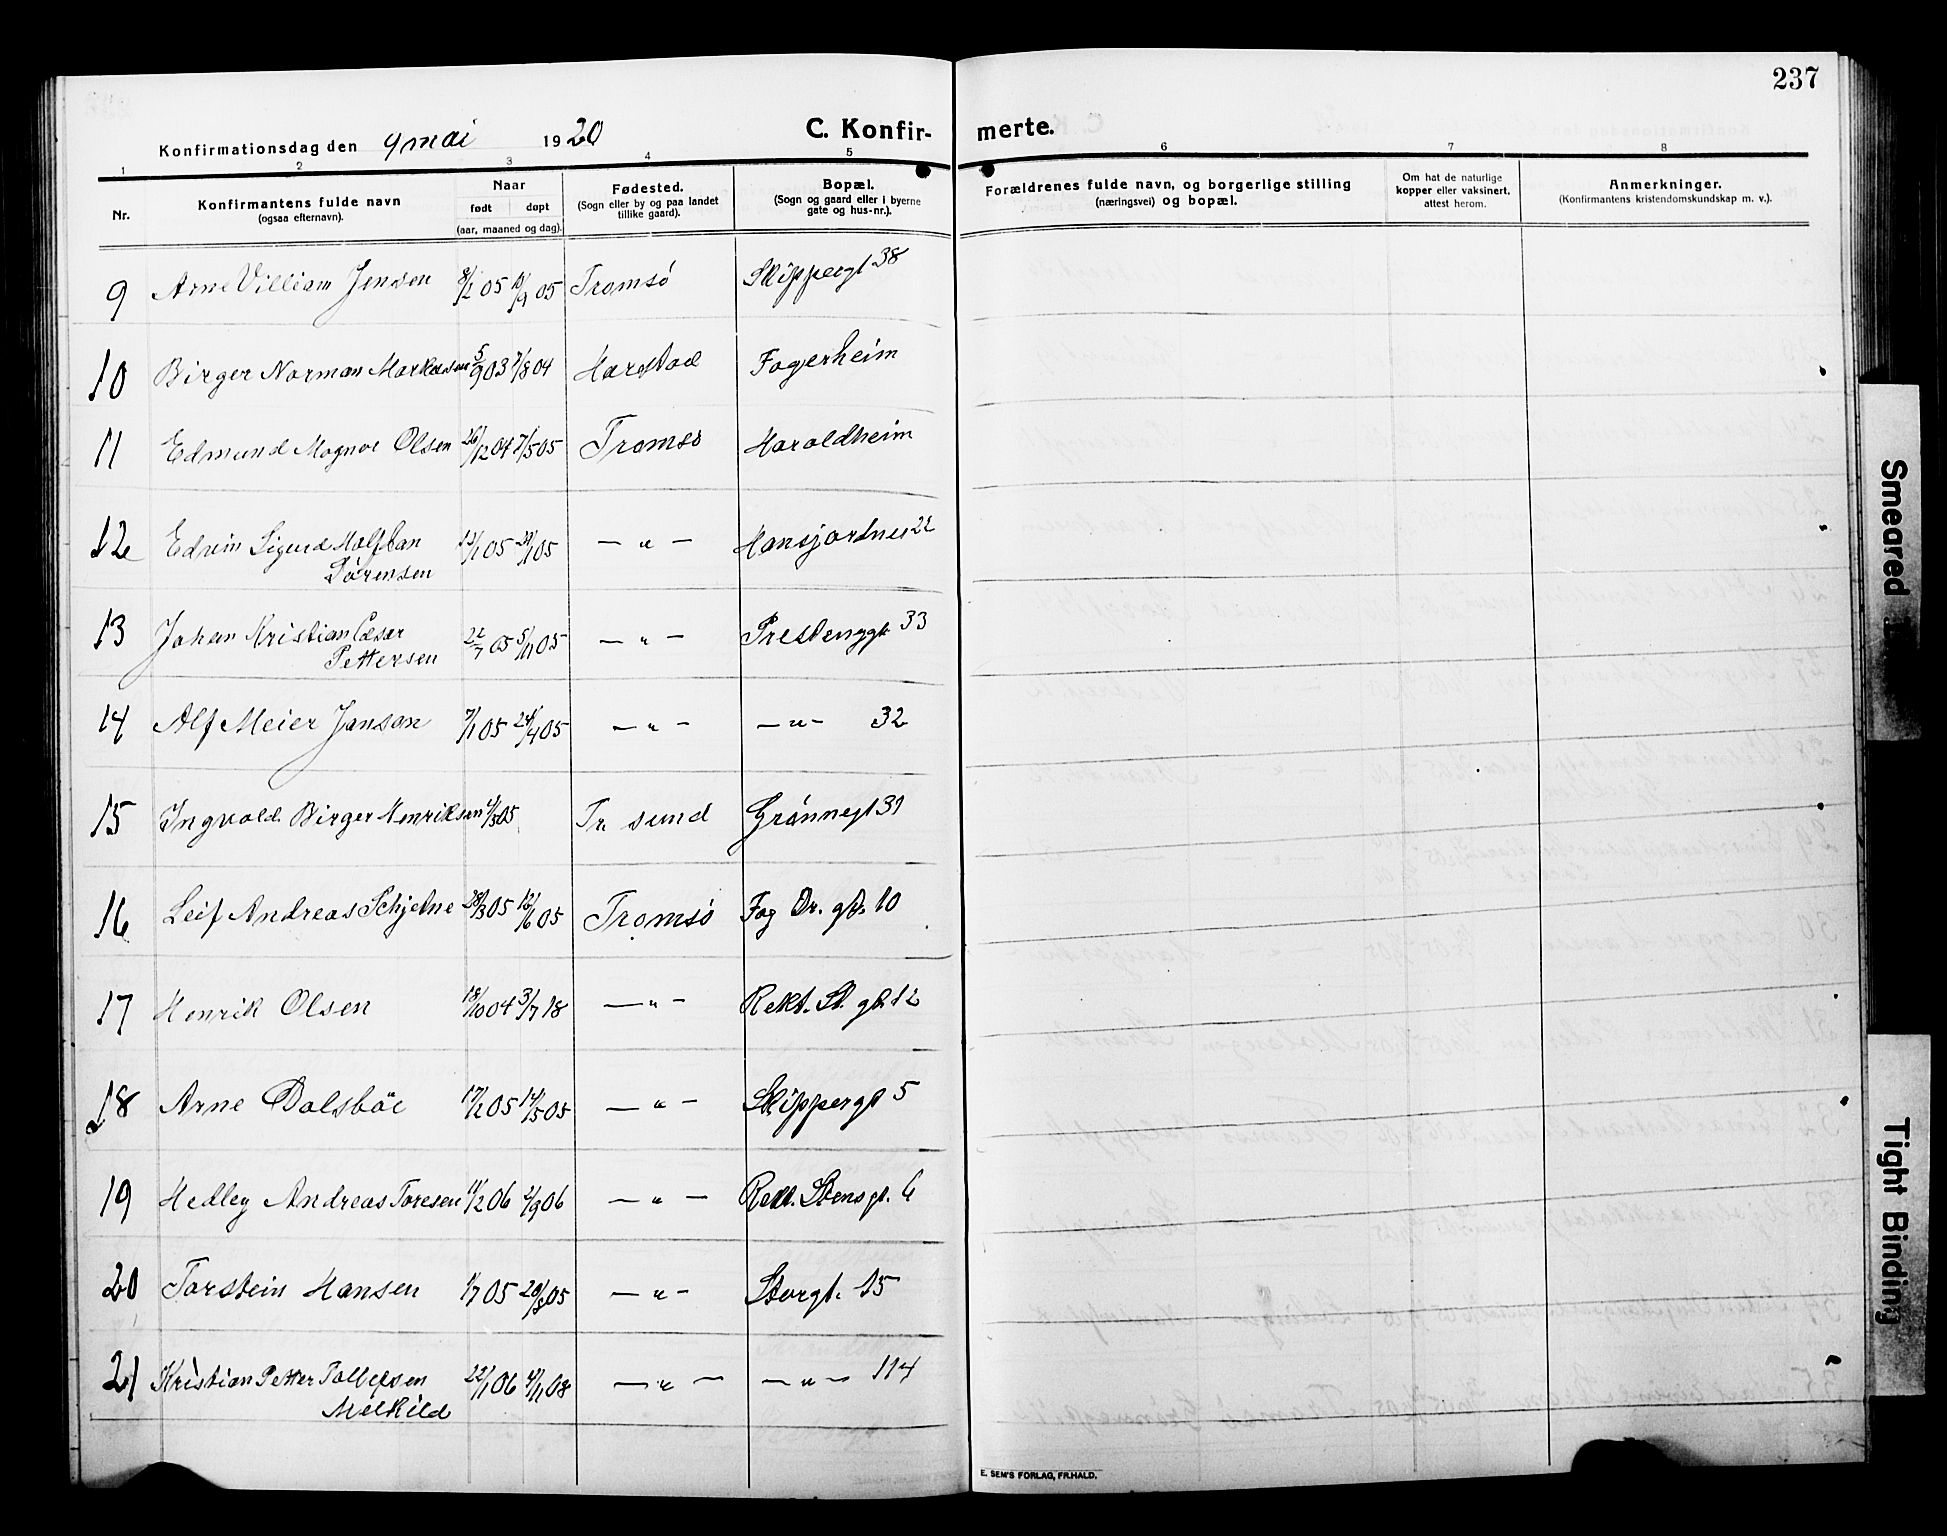 237
Konfirmationsdag den 9 mai 1920
C. Konfirmerte.
1 2 3 4 5 6 7 8
Nr.
Konfirmantens fulde navn
(ogsaa efternavn).
Naar
født døpt
(aar, maaned og dag).
Fødested.
(Sogn eller by og paa landet
tillike gaard).
Bopæl.
(Sogn og gaard eller i byerne
gate og hus-nr.).
Forældrenes fulde navn, og borgerlige stilling
(næringsvei) og bopæl.
Om hat de naturlige
kopper eller vaksinert,
attest herom.
Anmerkninger.
(Konfirmantens kristendomskundskap m. v.).
9 Arne Villiam Jensen 05 05 Tromsø Skippergt 38
10 Birger Norman Markussen 5/9 03 7/8 04 Harstad Fagerheim
11 Edmund Magnve Olsen 26/12 04 7/5 05 Tromsø Haraldheim
12 Edvin Sigurd Halfdan 05 05 — " — Hansjordnes 22
Sørensen
13 Johan Kristian Cæsar 22/7 05 5/11 05 — " — Prestenggt 33
Pettersen
14 Alf Meier Janson 7/1 05 24/4 05 — " — — " — 32
15 Ingvald Birger Henriksen 4/5 05 Tr. sund Grønnegt 31
16 Leif Andreas Schjelne 28/3 05 12/6 05 Tromsø Fog Dr. gt. 10
17 Henrik Olsen 18/10 04 3/7 18 — " — Rekt. St. gt. 12
18 Arne Dalsbøe 17/2 05 14/5 05 — " — Skippergt 5
19 Hedley Andreas Toresen 11/2 06 2/9 06 — " — Rekt. Stensgt. 6
20 Torstein Hansen 1/7 05 20/8 05 — " — Storgt. 15
21 Kristian Petter Tollefsen 22/1 06 4/11 08 — " — — " — 114
Melkild
E. SEM'S FORLAG, FR.HALD.
Smeared
Tight Binding